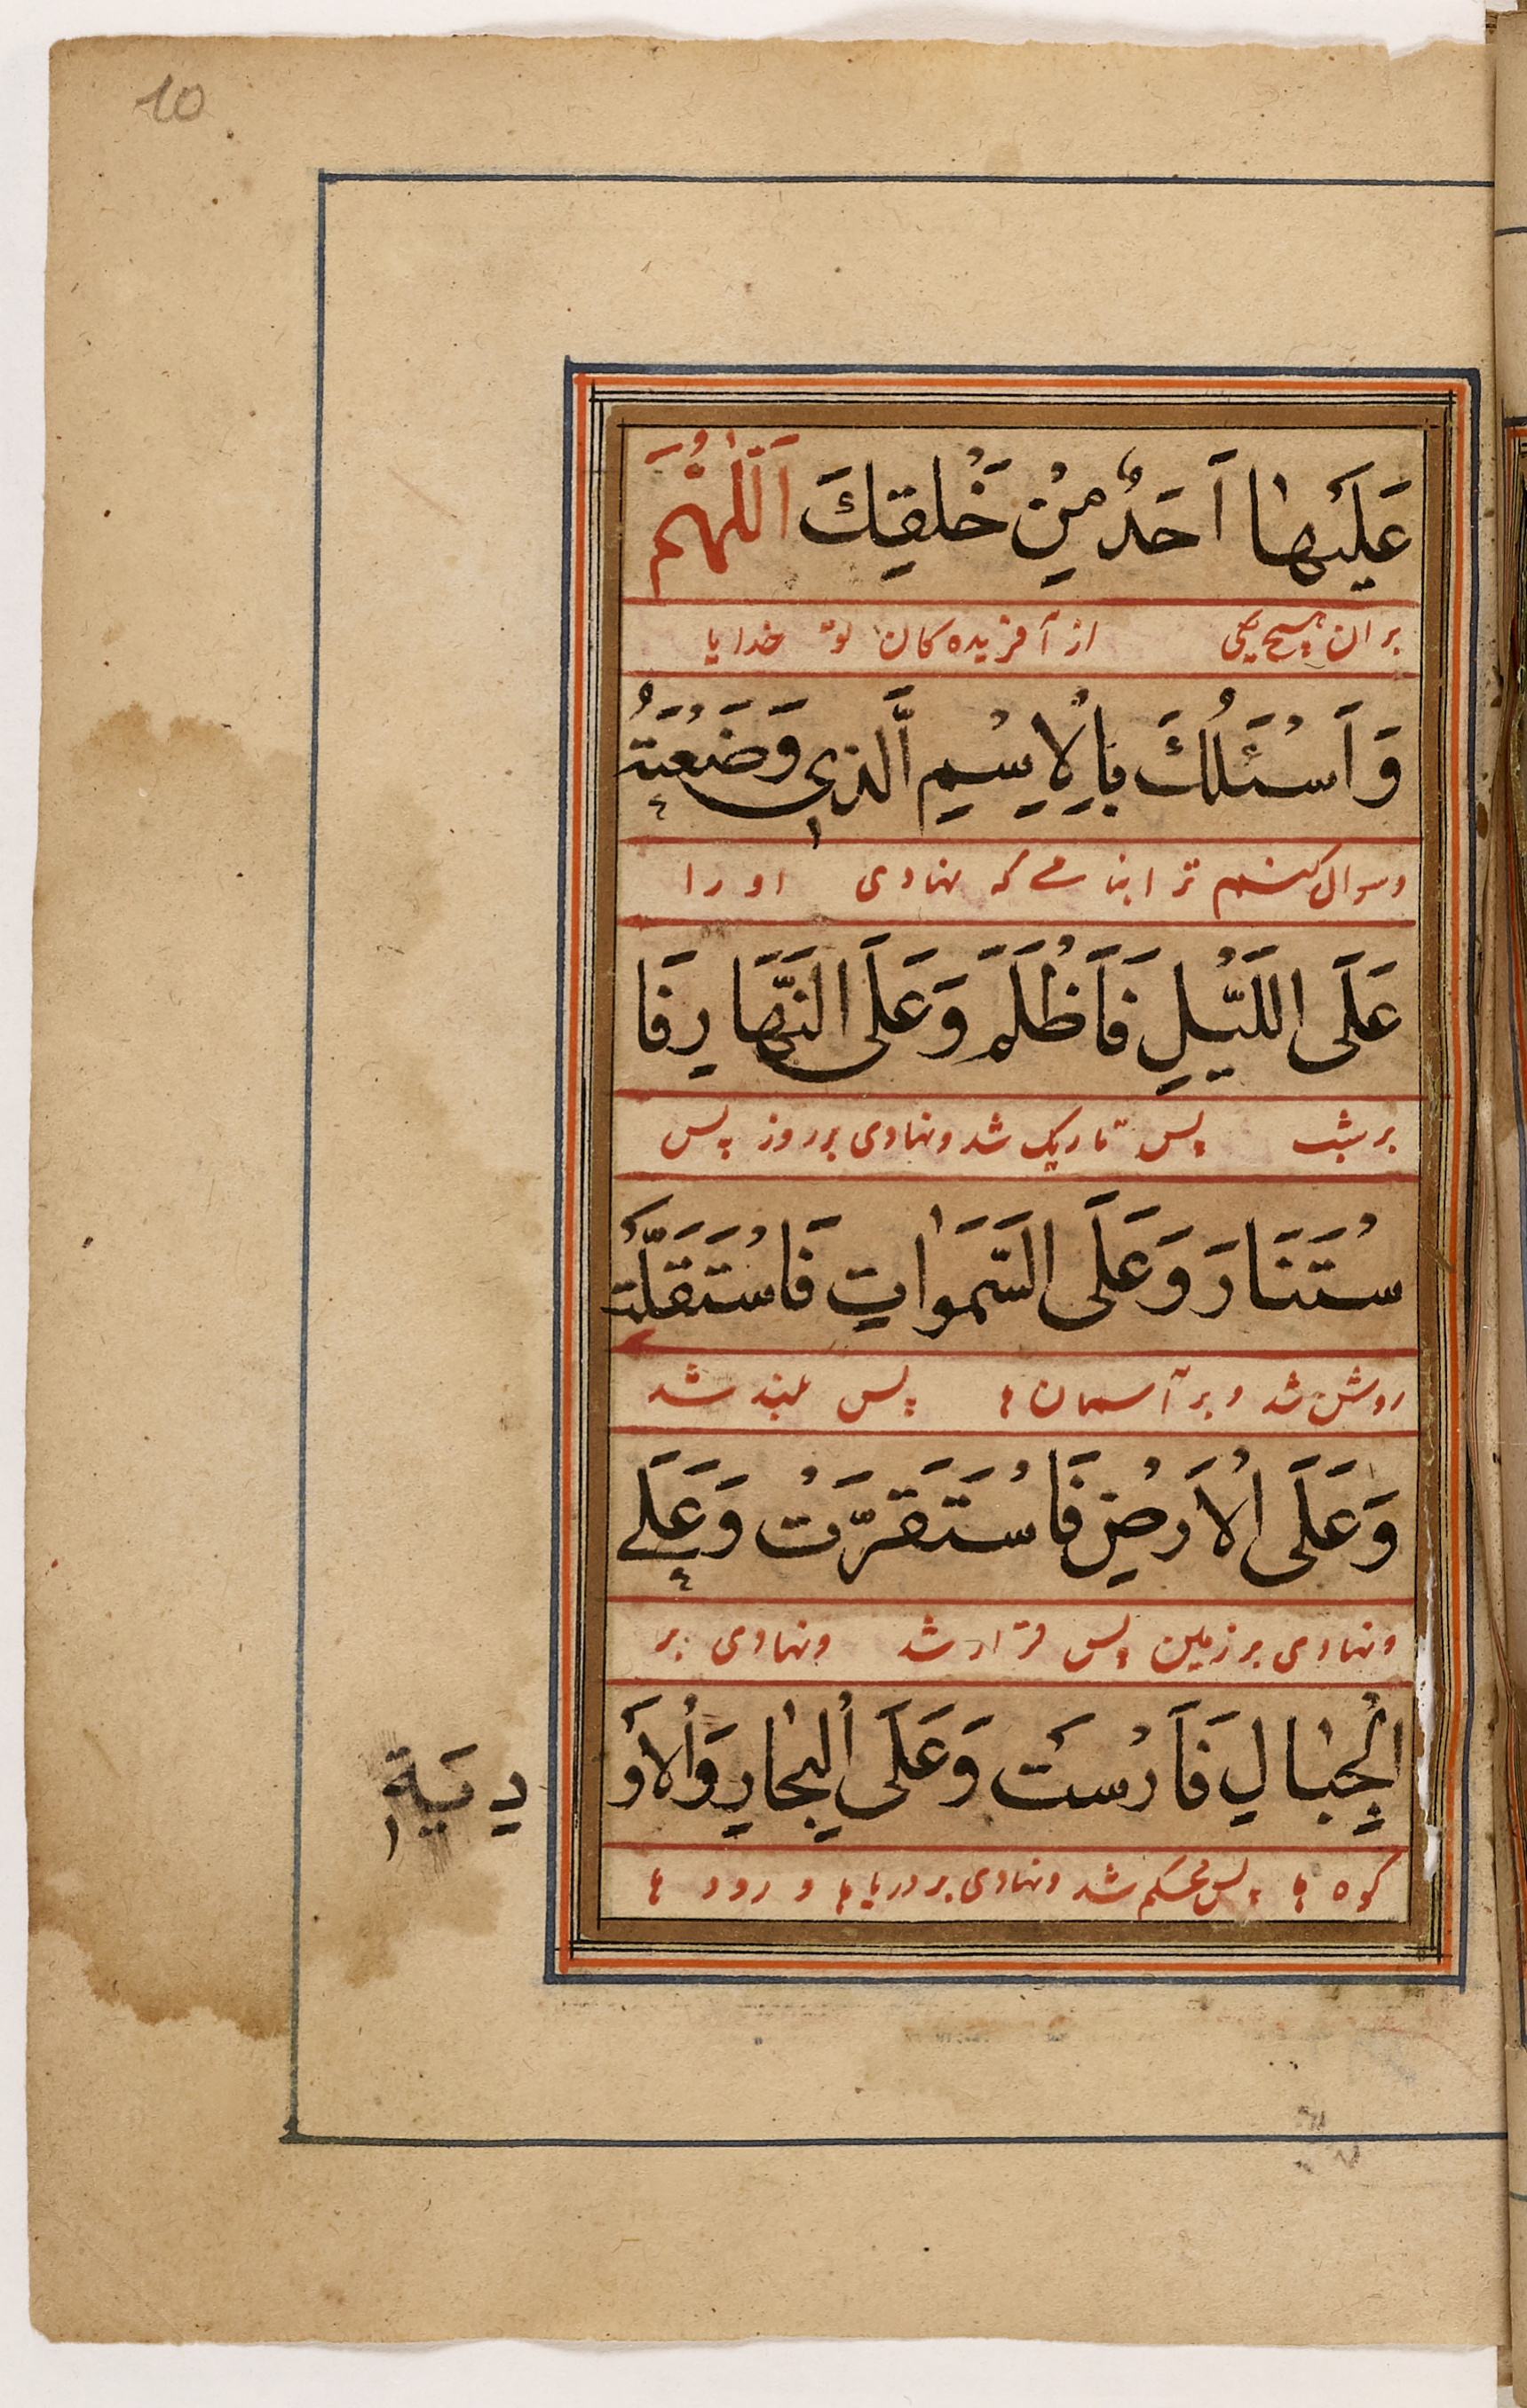 10
عَلَيْهٰا اَحَدٌ مِنْ خَلْقِكَ اَللّٰهُمَّ
بر ان هیچ یکی از آفریده کان تو خدایا
وَاَسْئَلُكَ بِالْاِسْمِ الَّذِي وَضَعْتَهُ
و سوال میکنم ترا بنامے که نهادی او را
عَلَى اللَّيْلِ فَاَظْلَمَ وَعَلَى النَّهَارِ فَا
بر شب پس تاریک شد و نهادی بر روز پس
سْتَنَارَ وَعَلَى السَّمَوٰاتِ فَاسْتَقَلَّتْ
روشن شد و بر آسمان ها پس بلند شد
وَعَلَى الْاَرْضِ فَاسْتَقَرَّتْ وَعَلَے
و نهادی بر زمین پس قرار شد و نهادی بر
الْجِبٰالِ فَاَرْسَتْ وَعَلَى الْبِحٰارِ وَالْاَوْ
دِيَةِ
کوه ها پس محکم شد و نهادی بر دریا ها و رود ها